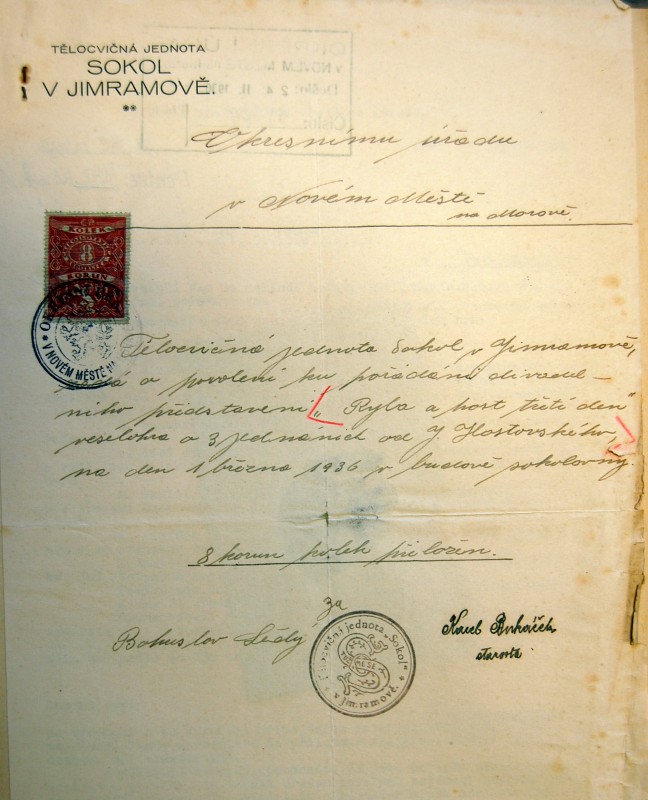 TĚLOCVIČNÁ JEDNOTA
SOKOL
V JIMRAMOVĚ.
Okresnímu úřadu
v Novém Městě
na Moravě.
KOLEK
8
KORUN
V NOVÉM MĚSTĚ NA
Tělocvičná jednota Sokol v Jimramově,
žádá o povolení ku pořádání divadel-
ního představení „Ryba a host třetí den"
veselohra o 3 jednáních od J. Hostovského,
na den 1 března 1936 v budově sokolovny.
8 korun kolek přiložen.
za
Bohuslav
Karel
starosta
Tělocvičná jednota „Sokol"
v Jimramově.